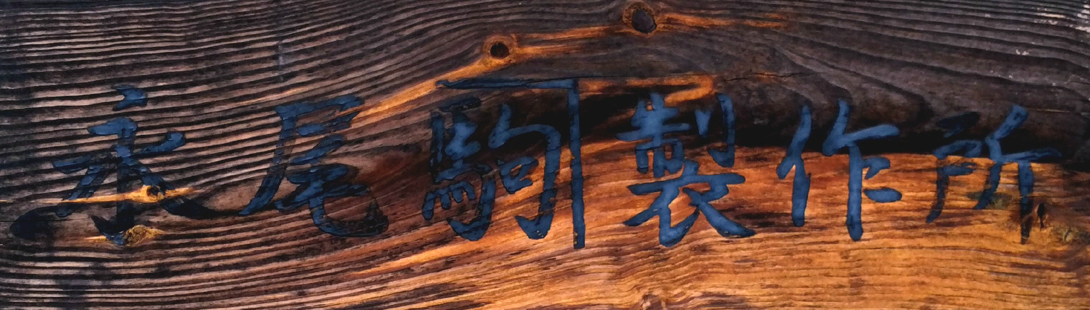 永尾駒製作所